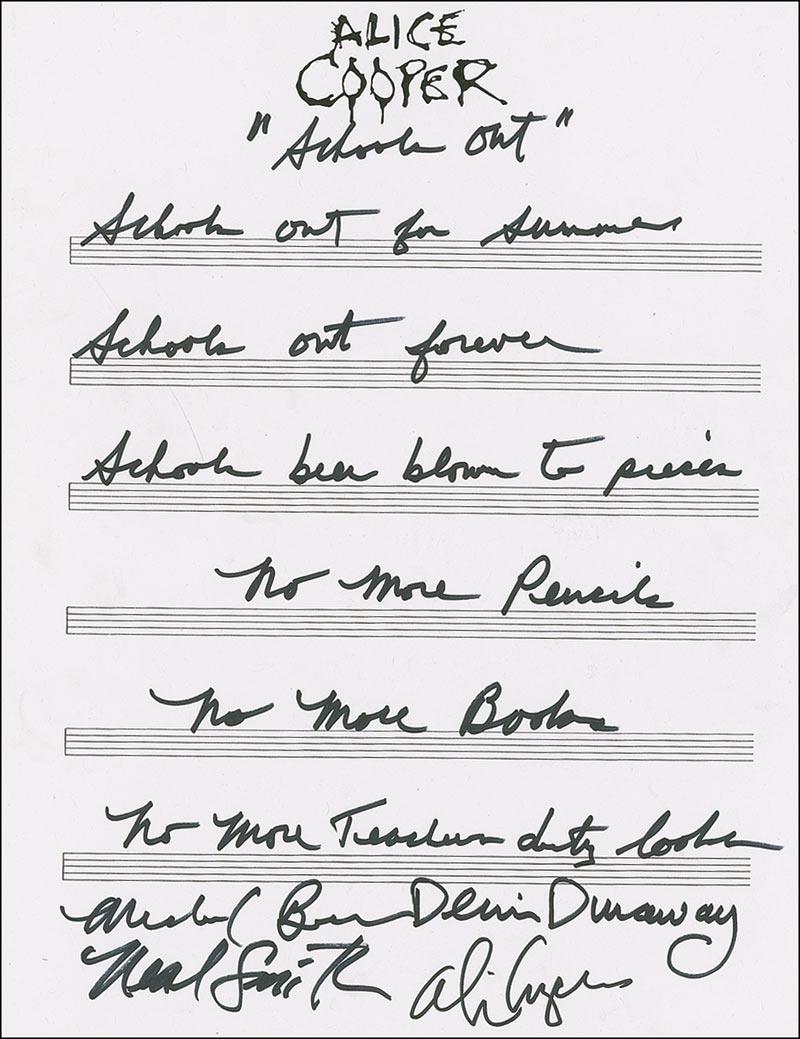 ALICE
COOPER
"Schools Out"
Schools out for summer
Schools out forever
Schools been blown to pieces
No More Pencils
No More Books
No More Teachers dirty looks
Michael Bruce Dennis Dunaway
Neal Smith Alice Cooper